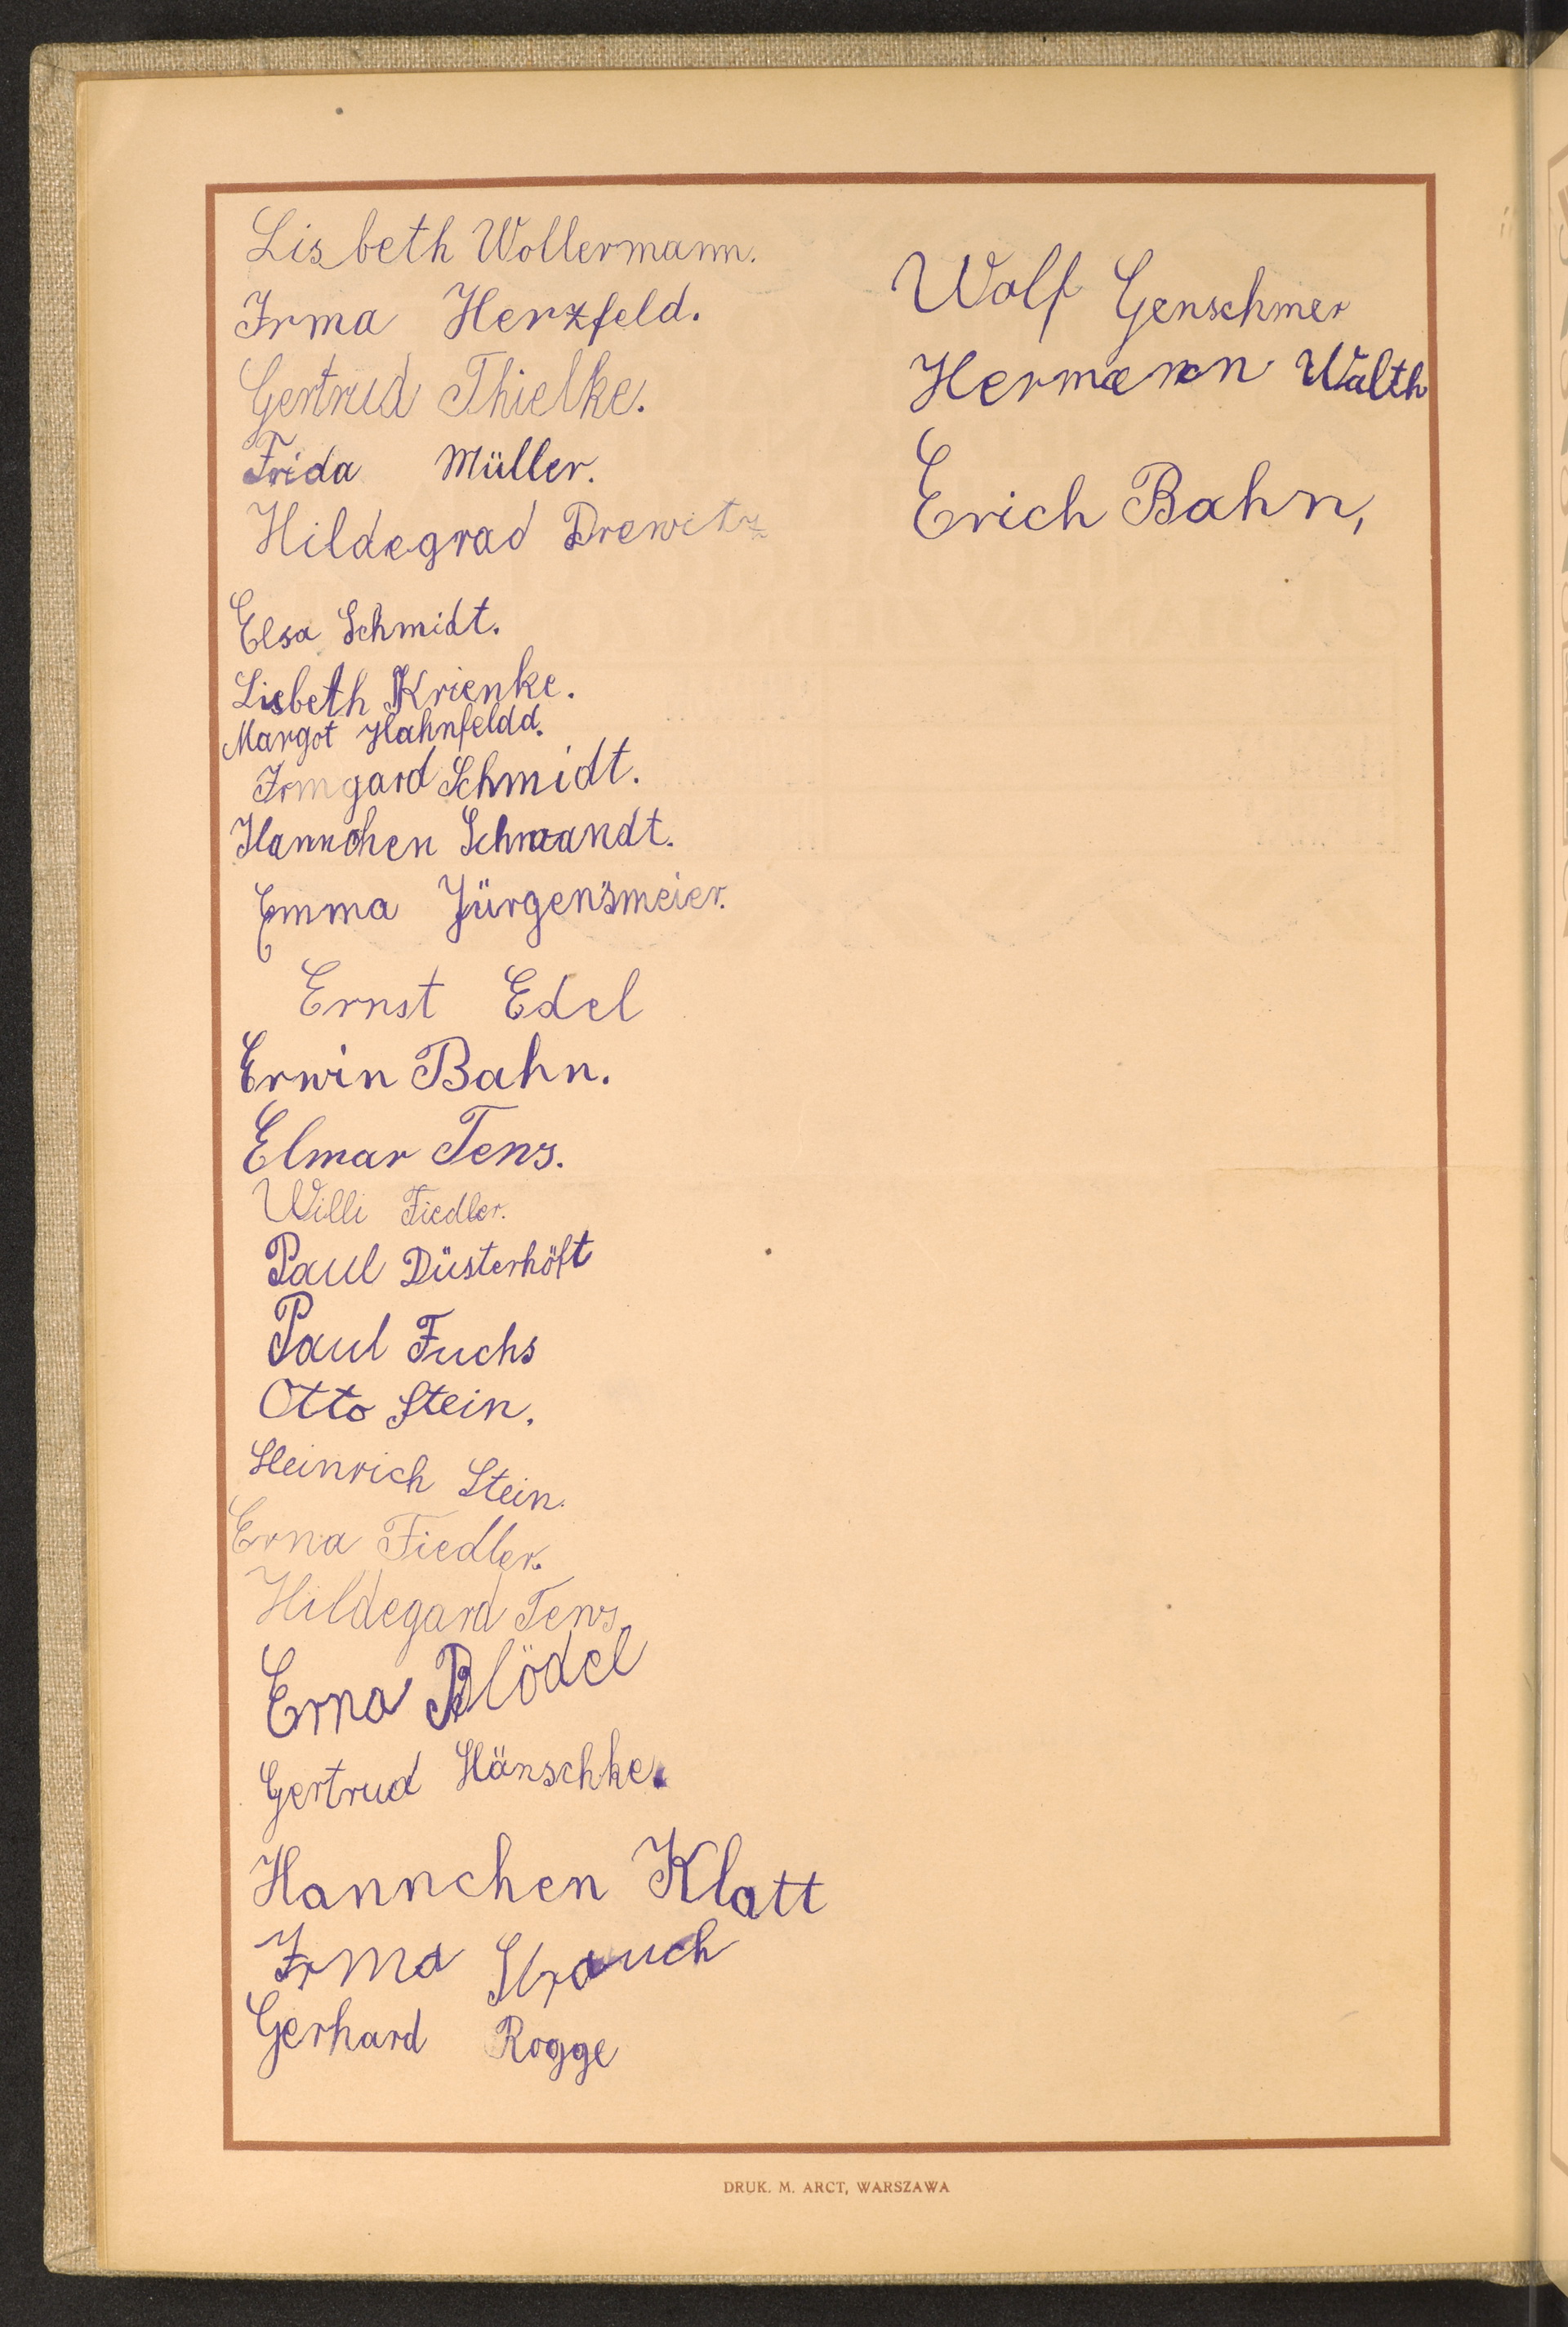 Lisbeth Wollermann.
Irma Herzfeld.
Gertrud Thielke.
Frida Müller.
Hildegrad Drewitz
Elsa Schmidt.
Lisbeth Krienke.
Margot Hahnfeldd.
Irmgard Schmidt.
Hannchen Schmandt.
Emma Jürgensmeier.
Ernst Edel
Erwin Bahn.
Elmar Tens.
Willi Fiedler.
Paul Düsterhöft
Paul Fuchs
Otto Stein.
Heinrich Stein.
Erna Fiedler.
Hildegard Tens
Erna Blödel
Gertrud Hänschke.
Hannchen Klatt
Irma Strauch
Gerhard Rogge
Wolf Genschmer
Hermann Walth
Erich Bahn,
DRUK. M. ARCT, WARSZAWA